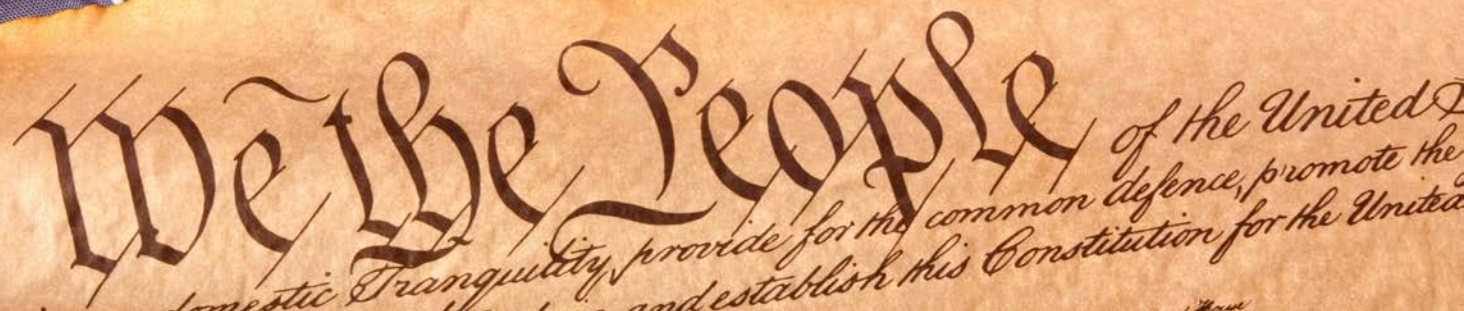 We the People of the United
domestic Tranquility, provide for the common defence, promote the
and establish this Constitution for the United